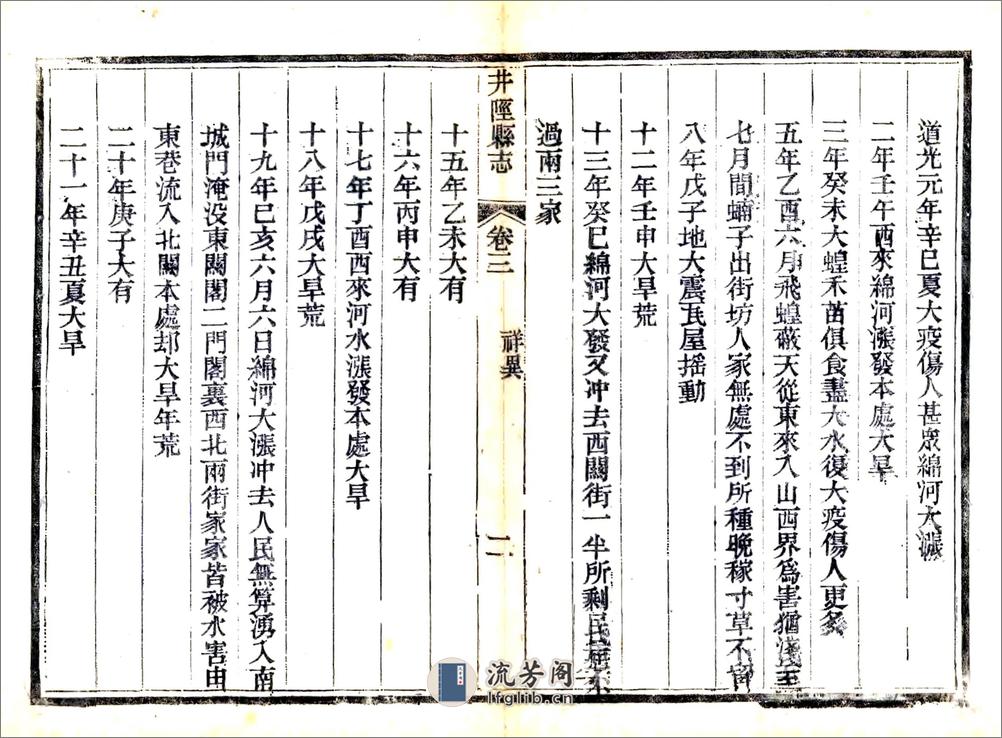 道光元年辛巳夏大疫傷人甚眾綿河大漲
二年壬午西來綿河漲發本處大旱
三年癸未大蝗禾苗俱食盡大水復大疫傷人更多
五年乙酉六月飛蝗蔽天從東來入山西界爲害猶淺至
七月間蝻子出街坊人家無處不到所種晚稼寸草不留
八年戊子地大震瓦屋摇動
十二年壬申大旱荒
十三年癸巳綿河大發又冲去西關街一半所剩民屋不
過兩三家
井陘縣志
卷三
祥異
二
十五年乙未大有
十六年丙申大有
十七年丁酉西來河水漲發本處大旱
十八年戊戌大旱荒
十九年己亥六月六日綿河大漲冲去人民無算湧入南
城門淹没東關閣二門閣裏西北兩街家家皆被水害由
東巷流入北關本處却大旱年荒
二十年庚子大有
二十一年辛丑夏大旱
流芳阁
lfglib.cn